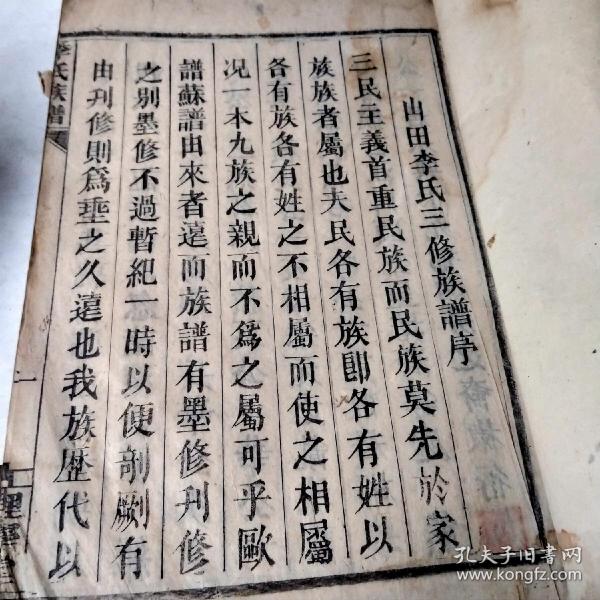 山田李氏三修族譜序
三民主義首重民族而民族莫先於家
族族者屬也夫民各有族即各有姓以
各有族各有姓之不相屬而使之相屬
况一本九族之親而不爲之屬可乎歐
譜蘇譜由來者遠而族譜有墨修刋修
之别墨修不過暫紀一時以便剞劂有
由刋修則爲垂之久遠也我族歴代以
李氏族譜
一
孔夫子旧书网
www.kongfz.com